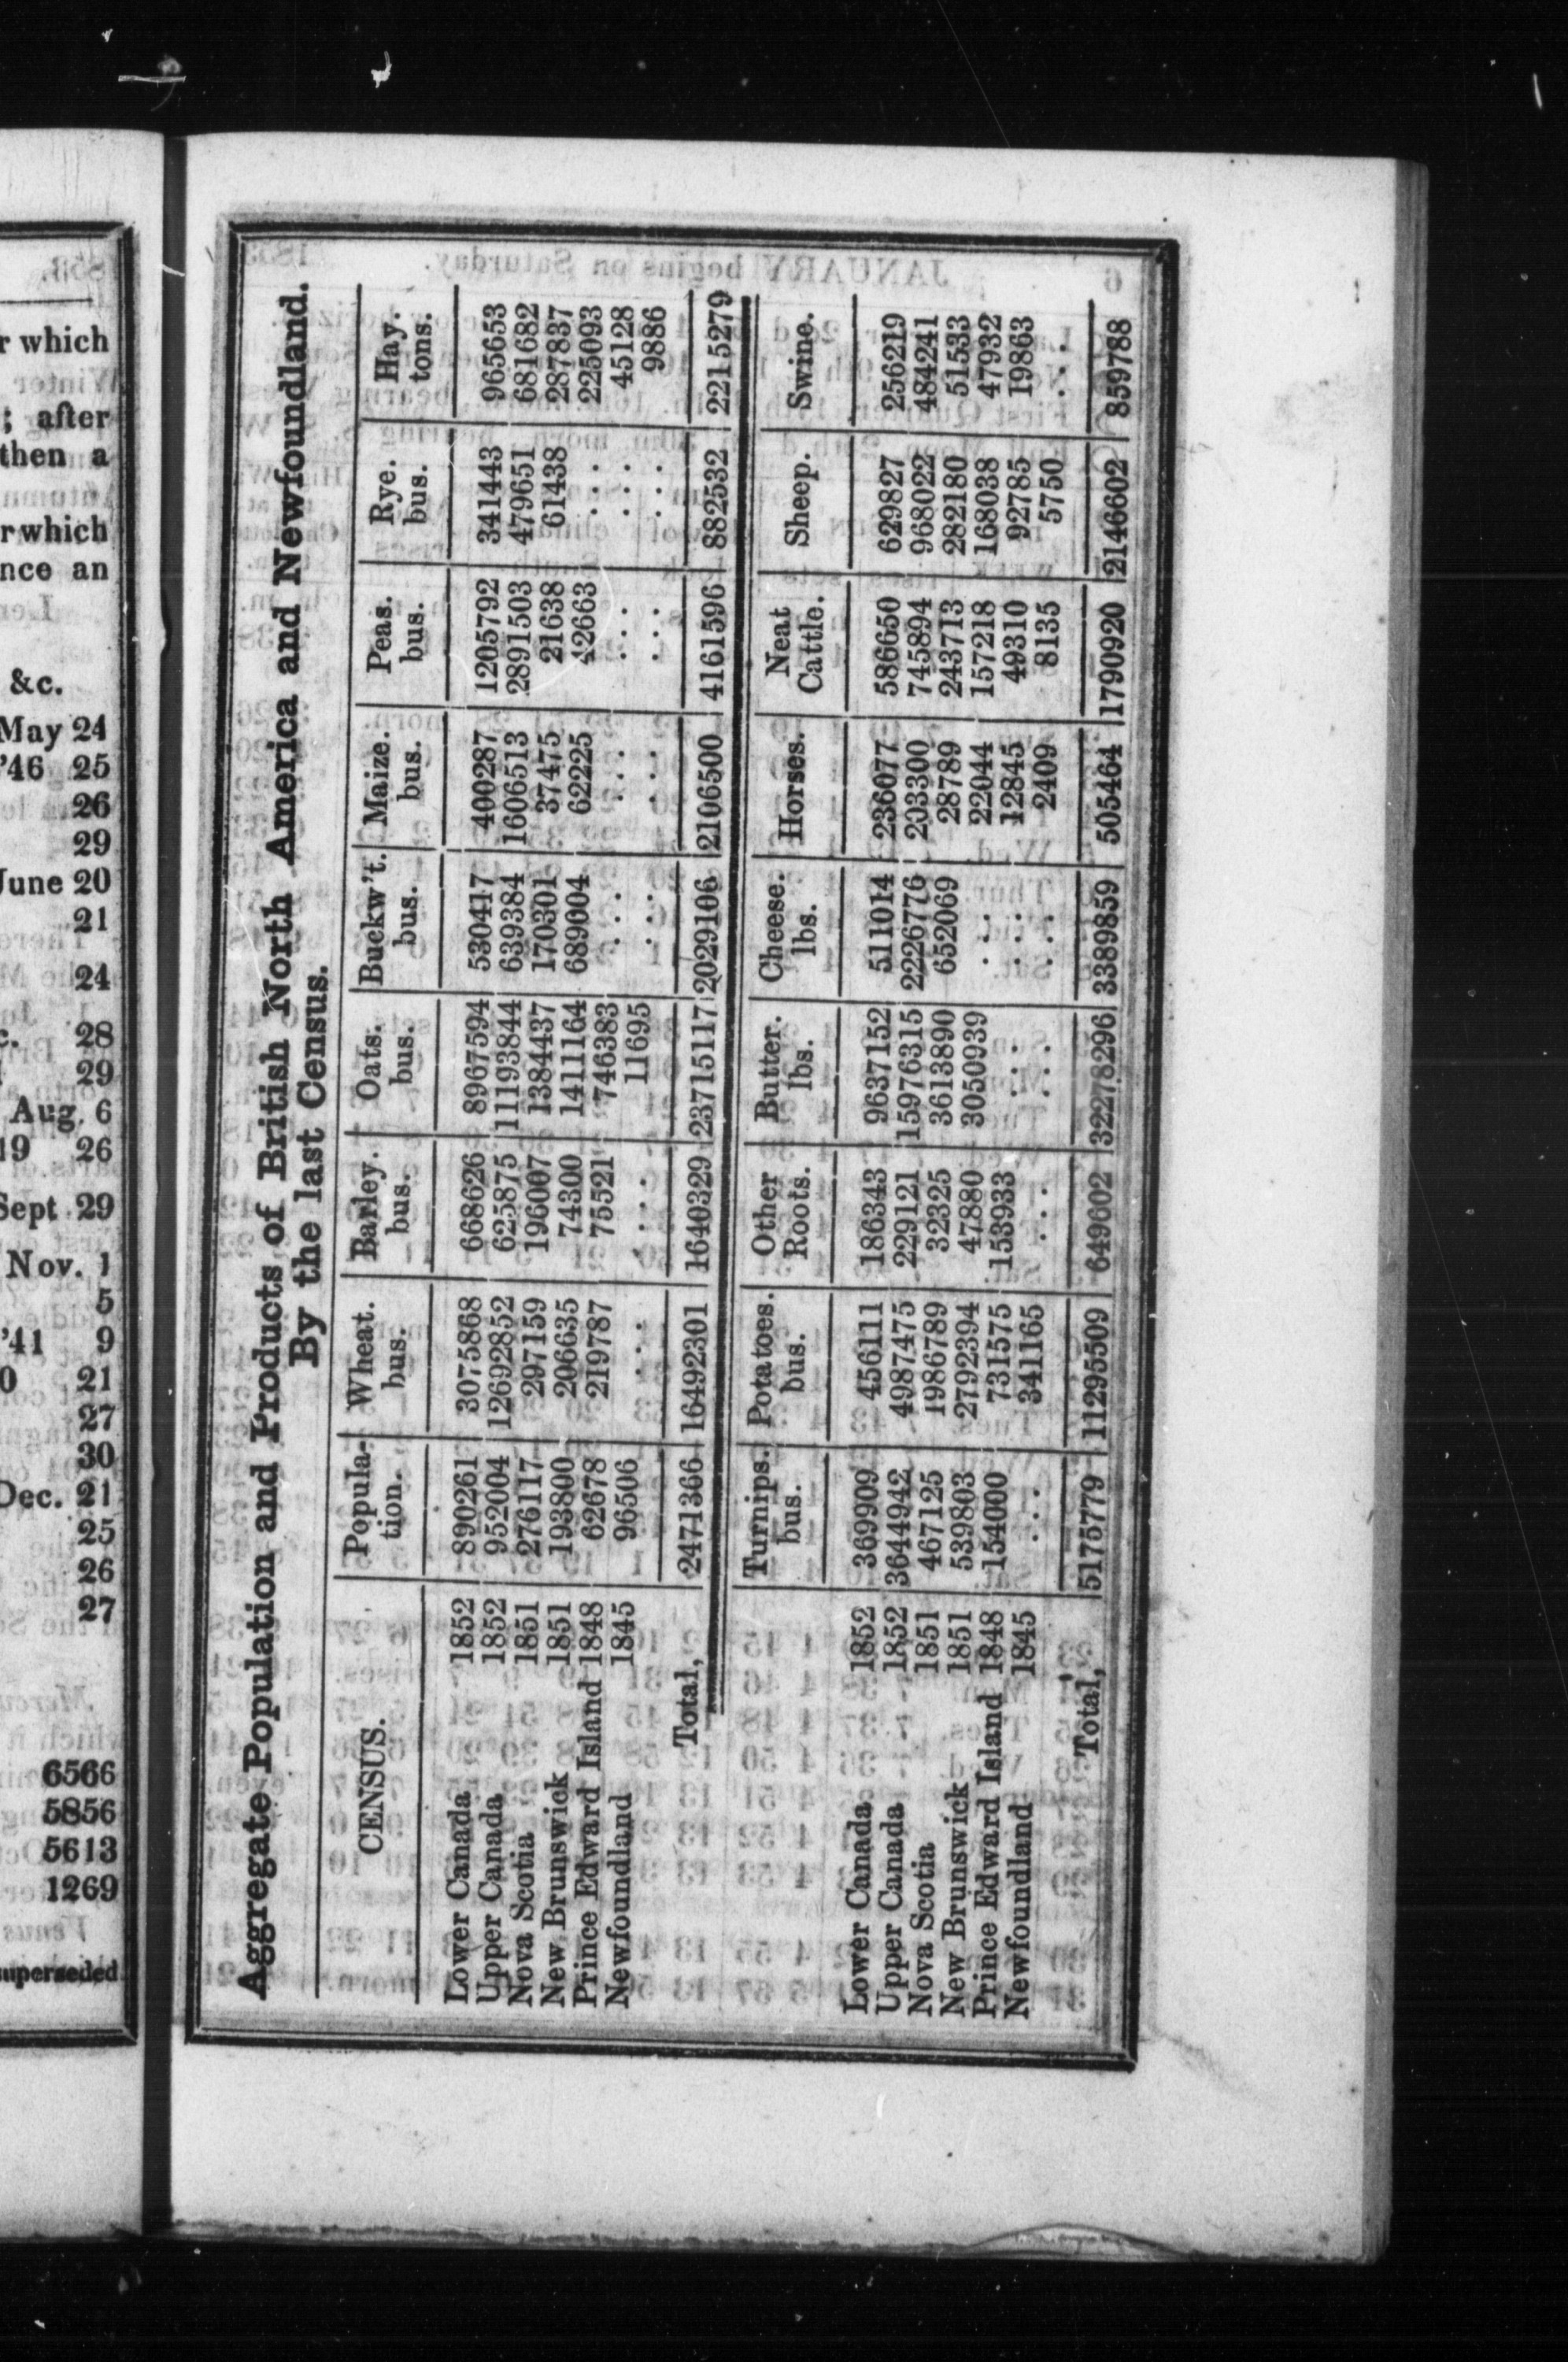 r which
; after
then a
r which
nce an
&c.
May 24
'46 25
26
29
June 20
21
24
28
29
Aug. 6
19 26
Sept 29
Nov. 1
5
'41 9
0 21
27
30
Dec. 21
25
26
27
6566
5856
5613
1269
superseded
Aggregate Population and Products of British North America and Newfoundland.
By the last Census.
CENSUS. Popula- Wheat. Barley. Oats. Buckw't. Maize. Peas. Rye. Hay.
tion. bus. bus. bus. bus. bus. bus. bus. tons.
Lower Canada 1852 890261 3075868 668626 8967594 530417 400287 1205792 341443 965653
Upper Canada 1852 952004 12692852 625875 11193844 639384 1606513 2891503 479651 681682
Nova Scotia 1851 276117 297159 196007 1384437 170301 37475 21638 61438 287837
New Brunswick 1851 193800 206635 74300 1411164 689004 62225 42663 ... 225093
Prince Edward Island 1848 62678 219787 75521 746383 ... ... ... ... 45128
Newfoundland 1845 96506 ... ... 11695 ... ... ... ... 9886
Total, 2471366 16492301 1640329 23715117 2029106 2106500 4161596 882532 2215279
Turnips. Potatoes. Other Butter. Cheese. Horses. Neat Sheep. Swine.
bus. bus. Roots. lbs. lbs. Cattle.
Lower Canada 1852 369909 456111 186343 9637152 511014 236077 586650 629827 256219
Upper Canada 1852 3644942 4987475 229121 15976315 2226776 203300 745894 968022 484241
Nova Scotia 1851 467125 1986789 32325 3613890 652069 28789 243713 282180 51533
New Brunswick 1851 539803 2792394 47880 3050939 ... 22044 157218 168038 47932
Prince Edward Island 1848 154000 731575 153933 ... ... 12845 49310 92785 19863
Newfoundland 1845 ... 341165 ... ... ... 2409 8135 5750 ...
Total, 5175779 11295509 649602 32278296 3389859 505464 1790920 2146602 859788